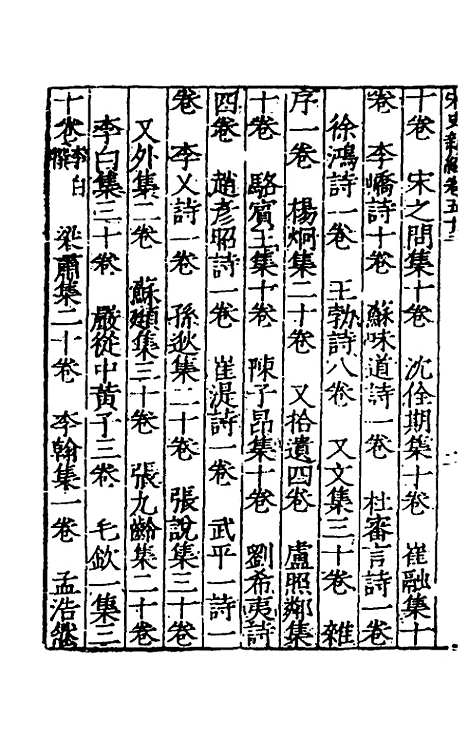 宋史新編卷五十三
十卷 宋之問集十卷 沈佺期集十卷 崔融集十
卷 李嶠詩十卷 蘇味道詩一卷 杜審言詩一卷
徐鴻詩一卷 王勃詩八卷 又文集三十卷 雜
序一卷 楊炯集二十卷 又拾遺四卷 盧照鄰集
十卷 駱賓王集十卷 陳子昂集十卷 劉希夷詩
四卷 趙彦昭詩一卷 崔湜詩一卷 武平一詩一
卷 李乂詩一卷 孫逖集二十卷 張說集三十卷
又外集二卷 蘇頲集三十卷 張九齡集二十卷
李白集三十卷 嚴從中黄子三卷 毛欽一集三
十卷李白撰 梁肅集二十卷 李翰集一卷 孟浩然